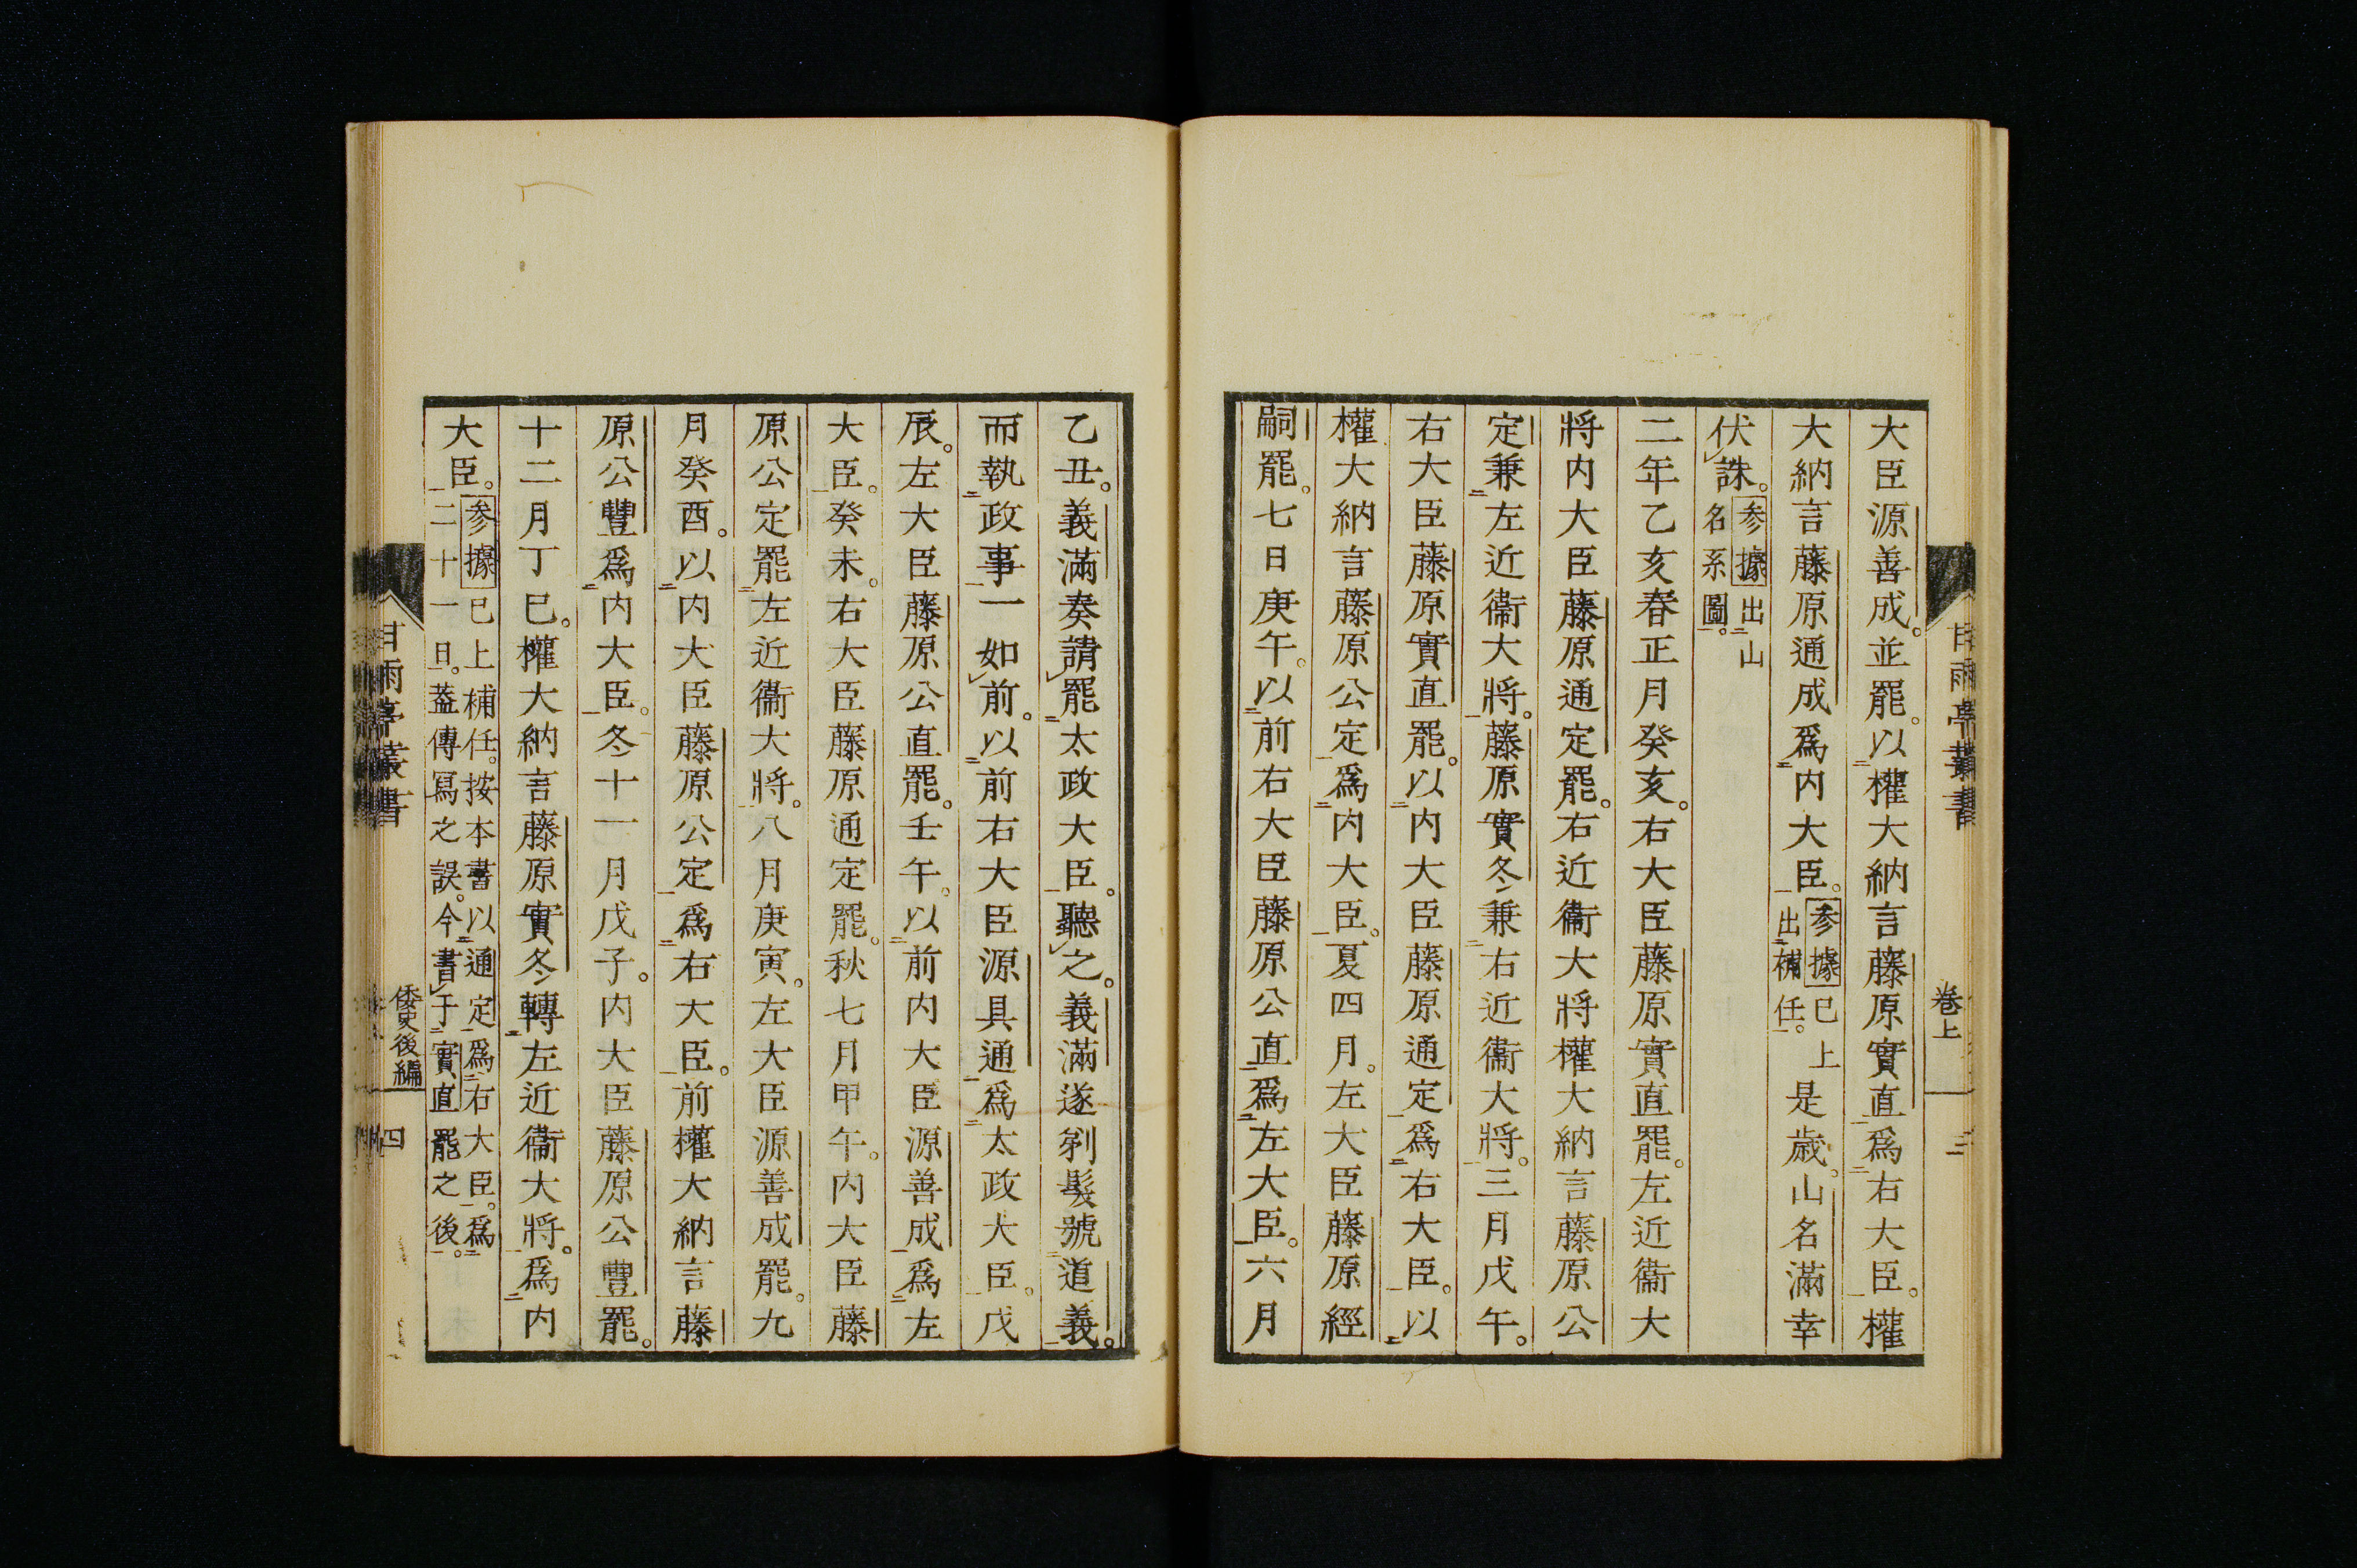 大臣源善成。並罷。以權大納言藤原實直爲右大臣。權
大納言藤原通成爲内大臣。参據已上出補任。是歳。山名滿幸
伏誅。参據出山名系圖。
二年乙亥春正月癸亥。右大臣藤原實直罷。左近衞大
將内大臣藤原通定罷。右近衞大將權大納言藤原公
定兼左近衞大將。藤原實冬兼右近衞大將。三月戊午。
右大臣藤原實直罷。以内大臣藤原通定爲右大臣。以
權大納言藤原公定爲内大臣。夏四月。左大臣藤原經
嗣罷。七日庚午。以前右大臣藤原公直爲左大臣。六月
甘雨亭叢書
卷上
三
乙丑。義滿奏請罷太政大臣。聽之。義滿遂剃髮號道義。
而執政事一如前。以前右大臣源具通爲太政大臣。戊
辰。左大臣藤原公直罷。壬午。以前内大臣源善成爲左
大臣。癸未。右大臣藤原通定罷。秋七月甲午。内大臣藤
原公定罷左近衞大將。八月庚寅。左大臣源善成罷。九
月癸酉。以内大臣藤原公定爲右大臣。前權大納言藤
原公豐爲内大臣。冬十一月戊子。内大臣藤原公豐罷。
十二月丁巳。權大納言藤原實冬轉左近衞大將。爲内
大臣。参據已上補任。按本書以通定爲右大臣。爲二十一日。蓋傳寫之誤。今書于實直罷之後。
甘雨亭叢書
倭史後編
四